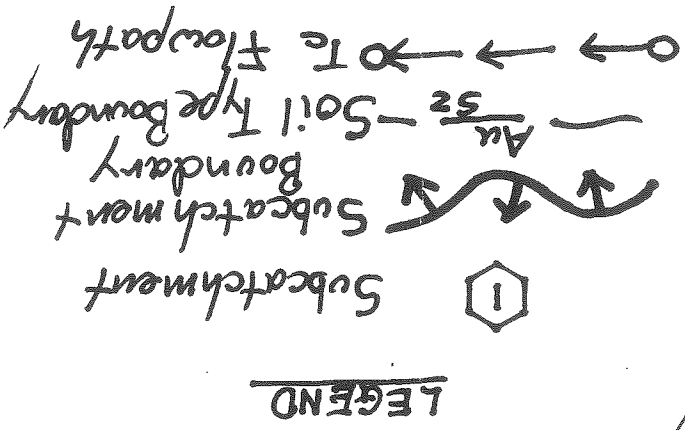 LEGEND
1 Subcatchment
Subcatchment
Boundary
Au
Sz
Soil Type Boundary
Tc Flowpath